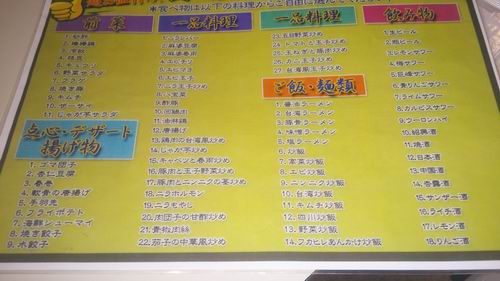 ※食べ物は以下の料理からご自由に選んでください
前菜
2. 棒棒鶏
5. キュウリ
6. 野菜サラダ
9. キムチ
10. ザーサイ
11. じゃが芋サラダ
点心・デザート
揚げ物
1. ゴマ団子
2. 杏仁豆腐
3. 春巻
4. 軟骨の唐揚げ
5. 手羽先
6. フライポテト
7. 海鮮シューマイ
8. 焼き餃子
9. 水餃子
一品料理
2. 麻婆豆腐
3. 麻婆春雨
4. エビチリ
5. エビマヨ
6. エビ玉子
7. ニラ玉子炒め
8. 八宝菜
9. 酢豚
10. 回鍋肉
11. 油淋鶏
12. 唐揚げ
13. 鶏肉の台湾風炒め
14. じゃが芋炒め
15. キャベツと春雨炒め
16. 豚肉と玉子野菜炒め
17. 豚肉とニンニクの茎炒め
18. ニラホルモン
19. ニラもやし
20. 肉団子の甘酢炒め
21. 青椒肉絲
22. 茄子の中華風炒め
一品料理
23. 五目野菜炒め
24. トマトと玉子炒め
25. 玉ねぎと豚肉炒め
26. 木耳と玉子炒め
27. 台湾風玉子炒め
ご飯・麺類
1. 醤油ラーメン
2. 台湾ラーメン
3. 豚骨ラーメン
4. 味噌ラーメン
5. 塩ラーメン
6. 炒飯
7. 高菜炒飯
8. エビ炒飯
9. ニンニク炒飯
10. 台湾炒飯
11. キムチ炒飯
12. 四川炒飯
13. 野菜炒飯
14. フカヒレあんかけ炒飯
飲み物
1. 生ビール
2. 瓶ビール
3. レモンサワー
4. 梅サワー
5. 巨峰サワー
6. 青りんごサワー
7. ライムサワー
8. カルピスサワー
9. ウーロンハイ
10. 紹興酒
11. 焼酒
12. 日本酒
13. 中国酒
14. 杏露酒
15. サンザー酒
16. ライチ酒
17. レモン酒
18. りんご酒